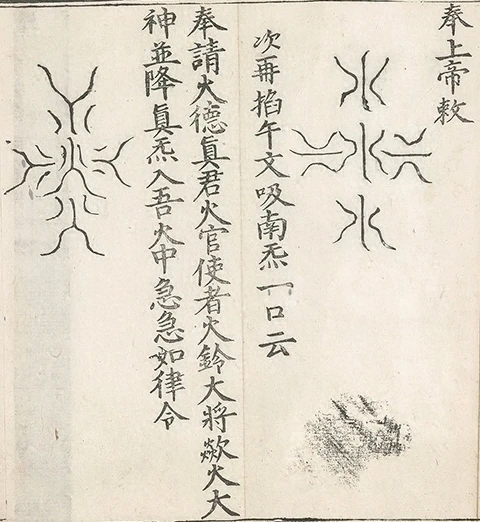 奉上帝敕
次再掐午文吸南炁一口云
奉請火德真君火官使者火鈴大將歘火大
神並降眞炁入吾火中急急如律令